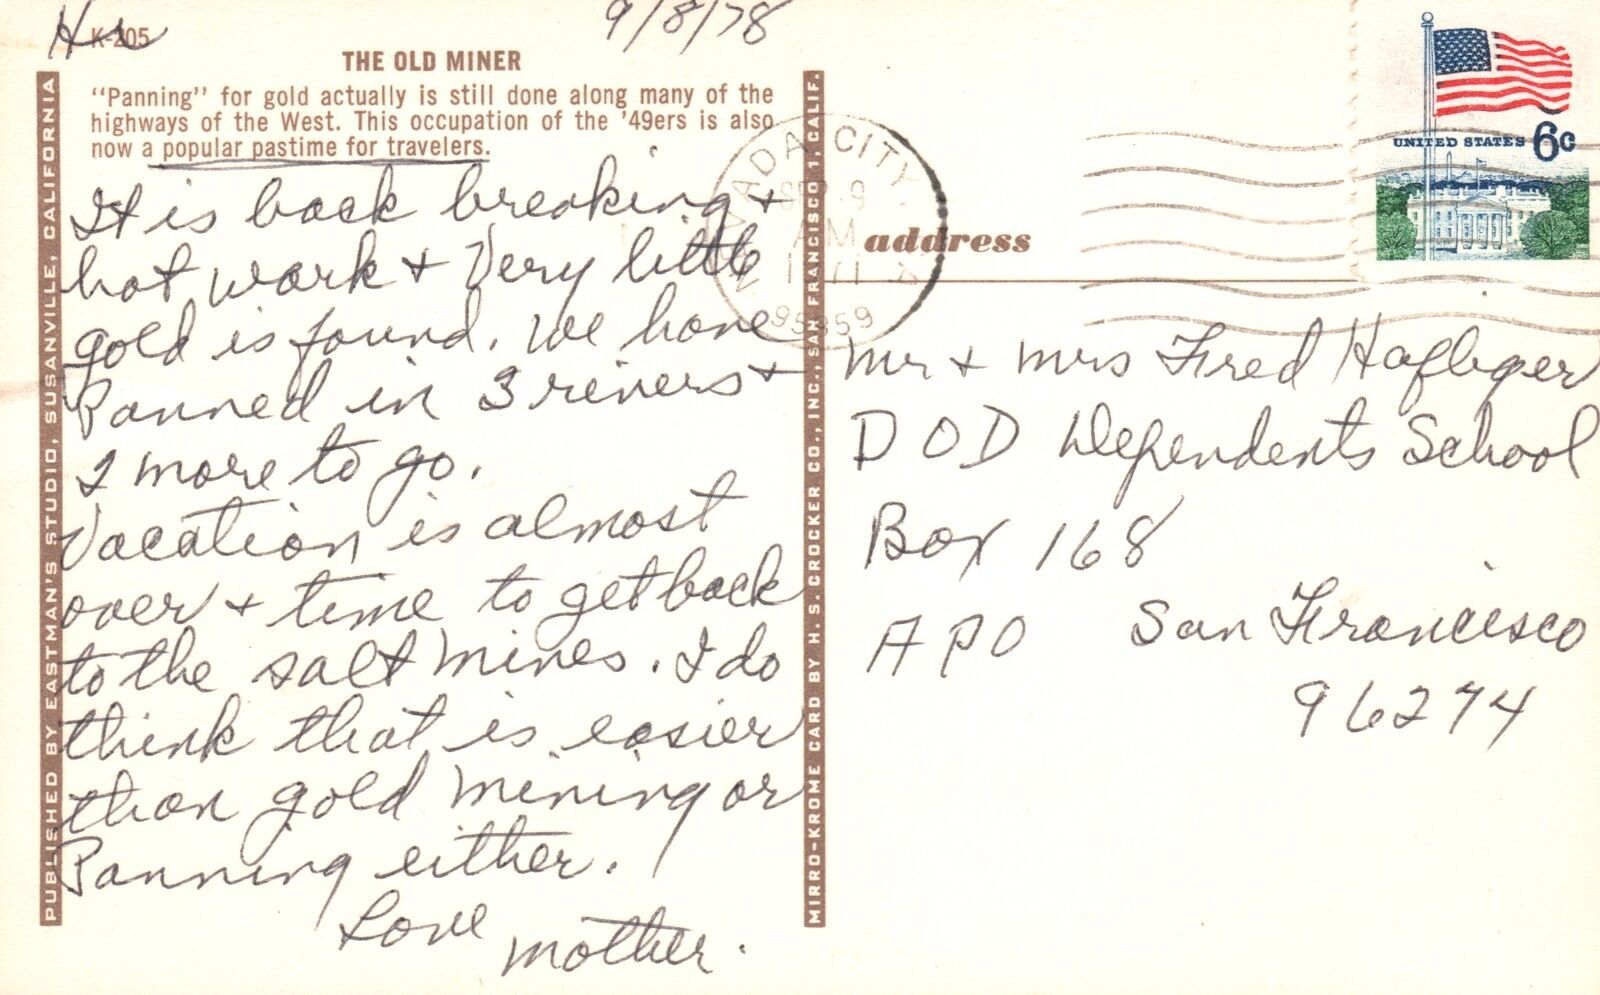 K-205
9/8/78
THE OLD MINER
"Panning" for gold actually is still done along many of the
highways of the West. This occupation of the '49ers is also
now a popular pastime for travelers.
It is back breaking +
hot work + Very little
gold is found. We have
Panned in 3 rivers +
2 more to go.
Vacation is almost
over + time to get back
to the salt mines. I do
think that is easier
than gold mining or
Panning either.
Love mother.
PUBLISHED BY EASTMAN'S STUDIO, SUSANVILLE, CALIFORNIA
MIRRO-KROME CARD BY H. S. CROCKER CO., INC., SAN FRANCISCO 1, CALIF.
NEVADA CITY
SEP 9
AM
95959
UNITED STATES 6c
address
Mr + Mrs Fred Hafliger
DOD Dependents School
Box 168
APO San Francisco
96274